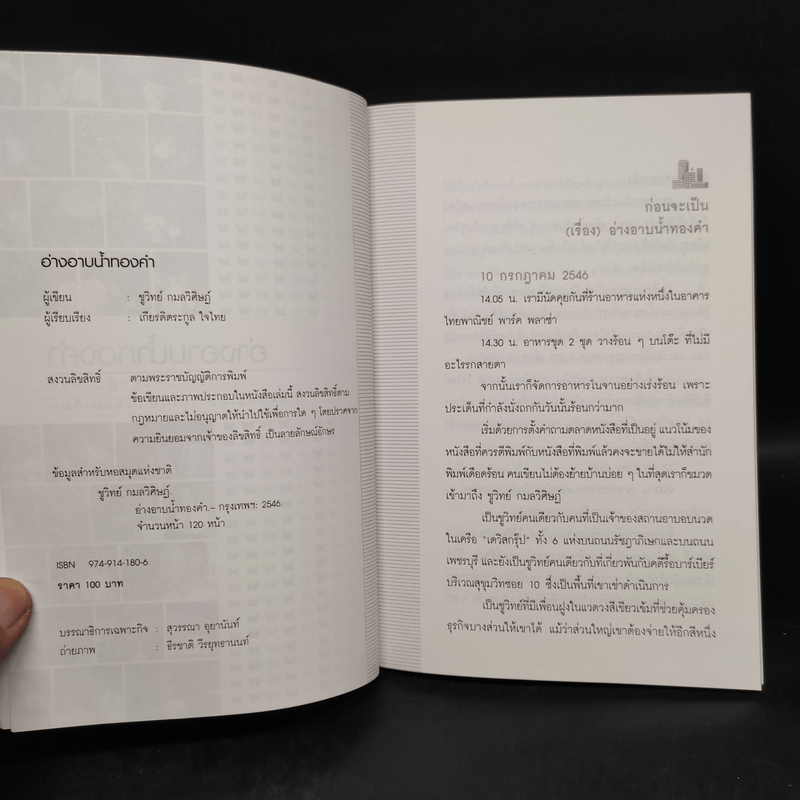 อ่างอาบน้ำทองคำ
ผู้เขียน : ชูวิทย์ กมลวิศิษฎ์
ผู้เรียบเรียง : เกียรติตระกูล ใจไทย
สงวนลิขสิทธิ์ ตามพระราชบัญญัติการพิมพ์
ข้อเขียนและภาพประกอบในหนังสือเล่มนี้ สงวนลิขสิทธิ์ตาม
กฎหมายและไม่อนุญาตให้นำไปใช้เพื่อการใด ๆ โดยปราศจาก
ความยินยอมจากเจ้าของลิขสิทธิ์ เป็นลายลักษณ์อักษร
ข้อมูลสำหรับหอสมุดแห่งชาติ
ชูวิทย์ กมลวิศิษฎ์.
อ่างอาบน้ำทองคำ.- กรุงเทพฯ: 2546.
จำนวนหน้า 120 หน้า
ISBN 974-914-180-6
ราคา 100 บาท
บรรณาธิการเฉพาะกิจ : สุวรรณา อุยานันท์
ถ่ายภาพ : ธีรชาติ วีรยุทธานนท์
ก่อนจะเป็น
(เรื่อง) อ่างอาบน้ำทองคำ
10 กรกฎาคม 2546
14.05 น. เรามีนัดคุยกันที่ร้านอาหารแห่งหนึ่งในอาคาร
ไทยพาณิชย์ พาร์ค พลาซ่า
14.30 น. อาหารชุด 2 ชุด วางร้อน ๆ บนโต๊ะ ที่ไม่มี
อะไรรกสายตา
จากนั้นเราก็จัดการอาหารในจานอย่างเร่งร้อน เพราะ
ประเด็นที่กำลังนั่งถกกันวันนั้นร้อนกว่ามาก
เริ่มด้วยการตั้งคำถามตลาดหนังสือที่เป็นอยู่ แนวโน้มของ
หนังสือที่ควรตีพิมพ์กับหนังสือที่พิมพ์แล้วคงจะขายได้ไม่ให้สำนัก
พิมพ์เดือดร้อน คนเขียนไม่ต้องย้ายบ้านบ่อย ๆ ในที่สุดเราก็ขมวด
เข้ามาถึง ชูวิทย์ กมลวิศิษฎ์
เป็นชูวิทย์คนเดียวกับคนที่เป็นเจ้าของสถานอาบอบนวด
ในเครือ "เดวิสกรุ๊ป" ทั้ง 6 แห่งบนถนนรัชฎาภิเษกและบนถนน
เพชรบุรี และยังเป็นชูวิทย์คนเดียวกับที่เกี่ยวพันกับคดีรื้อบาร์เบียร์
บริเวณสุขุมวิทซอย 10 ซึ่งเป็นพื้นที่เขาเช่าดำเนินการ
เป็นชูวิทย์ที่มีเพื่อนฝูงในแวดวงสีเขียวเข้มที่ช่วยคุ้มครอง
ธุรกิจบางส่วนให้เขาได้ แม้ว่าส่วนใหญ่เขาต้องจ่ายให้อีกสีหนึ่ง